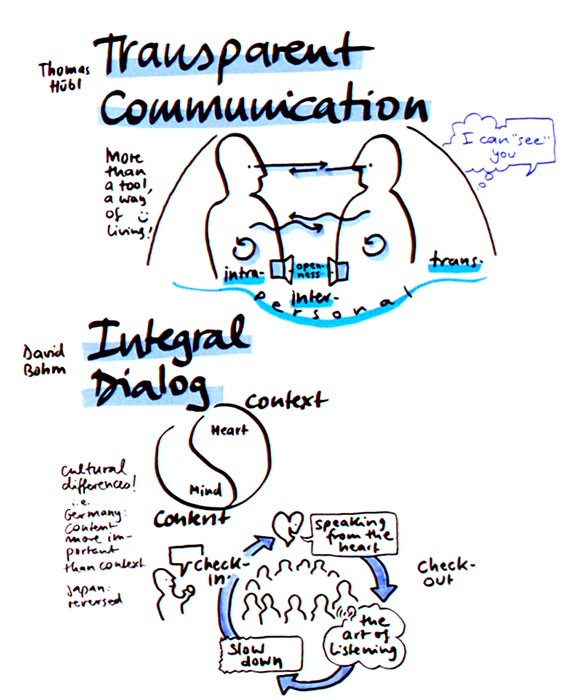 Thomas
Hübl
Transparent
Communication
I can "see"
you
More
than
a tool,
a way
of
living!
open-
ness
intra-
inter-
trans-
personal
David
Bohm
Integral
Dialog
Context
Heart
Mind
Content
Cultural
differences!
i.e.
Germany:
Content
more im-
portant
than context
Japan:
reversed
Check-
in
speaking
from the
heart
Check-
out
the
art of
listening
Slow
down